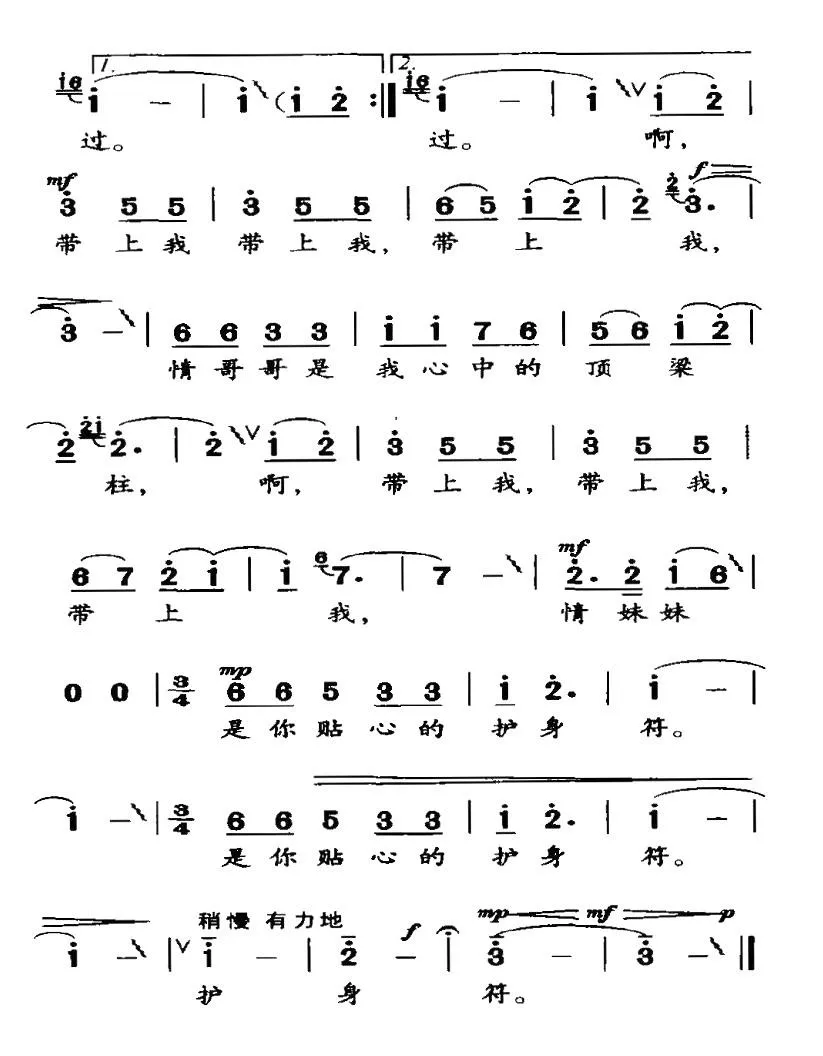 1. 2.
i6 i – | i (i 2 :|| i6 i – | i ∨ i 2 |
过。 过。 啊，
mf f
3 5 5 | 3 5 5 | 6 5 i 2 | 2 2 3. |
带 上 我 带 上 我， 带 上 我，
3 – | 6 6 3 3 | i i 7 6 | 5 6 i 2 |
情 哥 哥 是 我 心 中 的 顶 梁
2 2i 2. | 2 ∨ i 2 | 3 5 5 | 3 5 5 |
柱， 啊， 带 上 我， 带 上 我，
mf
6 7 2 i | i 6 7. | 7 – | 2. 2 i 6 |
带 上 我， 情 妹 妹
mp
0 0 | 3/4 6 6 5 3 3 | i 2. | i – |
是 你 贴 心 的 护 身 符。
i – | 3/4 6 6 5 3 3 | i 2. | i – |
是 你 贴 心 的 护 身 符。
稍慢 有力地 f mp mf p
i – | ∨ i – | 2 – | 3 – | 3 – ||
护 身 符。